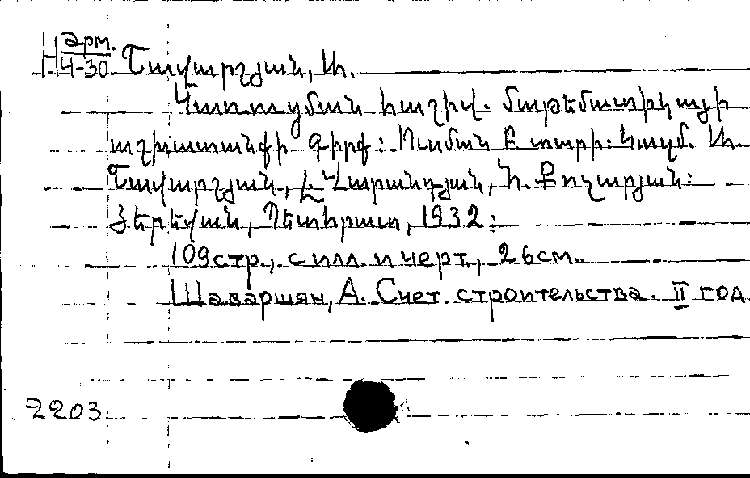 Арм.
4-30 Շավարշյան, Ա.
Կառուցման հաշիվ. մաթեմատիկայի
աշխատանքի գիրք: Ուսման Բ տարի: Կազմ. Ա.
Շավարշյան, Հ. Քոչարյան:
Յերեվան, Պետհրատ, 1932:
109 стр., с илл. и черт., 26 см.
Шаваршян, А. Счет строительства. II год
2203